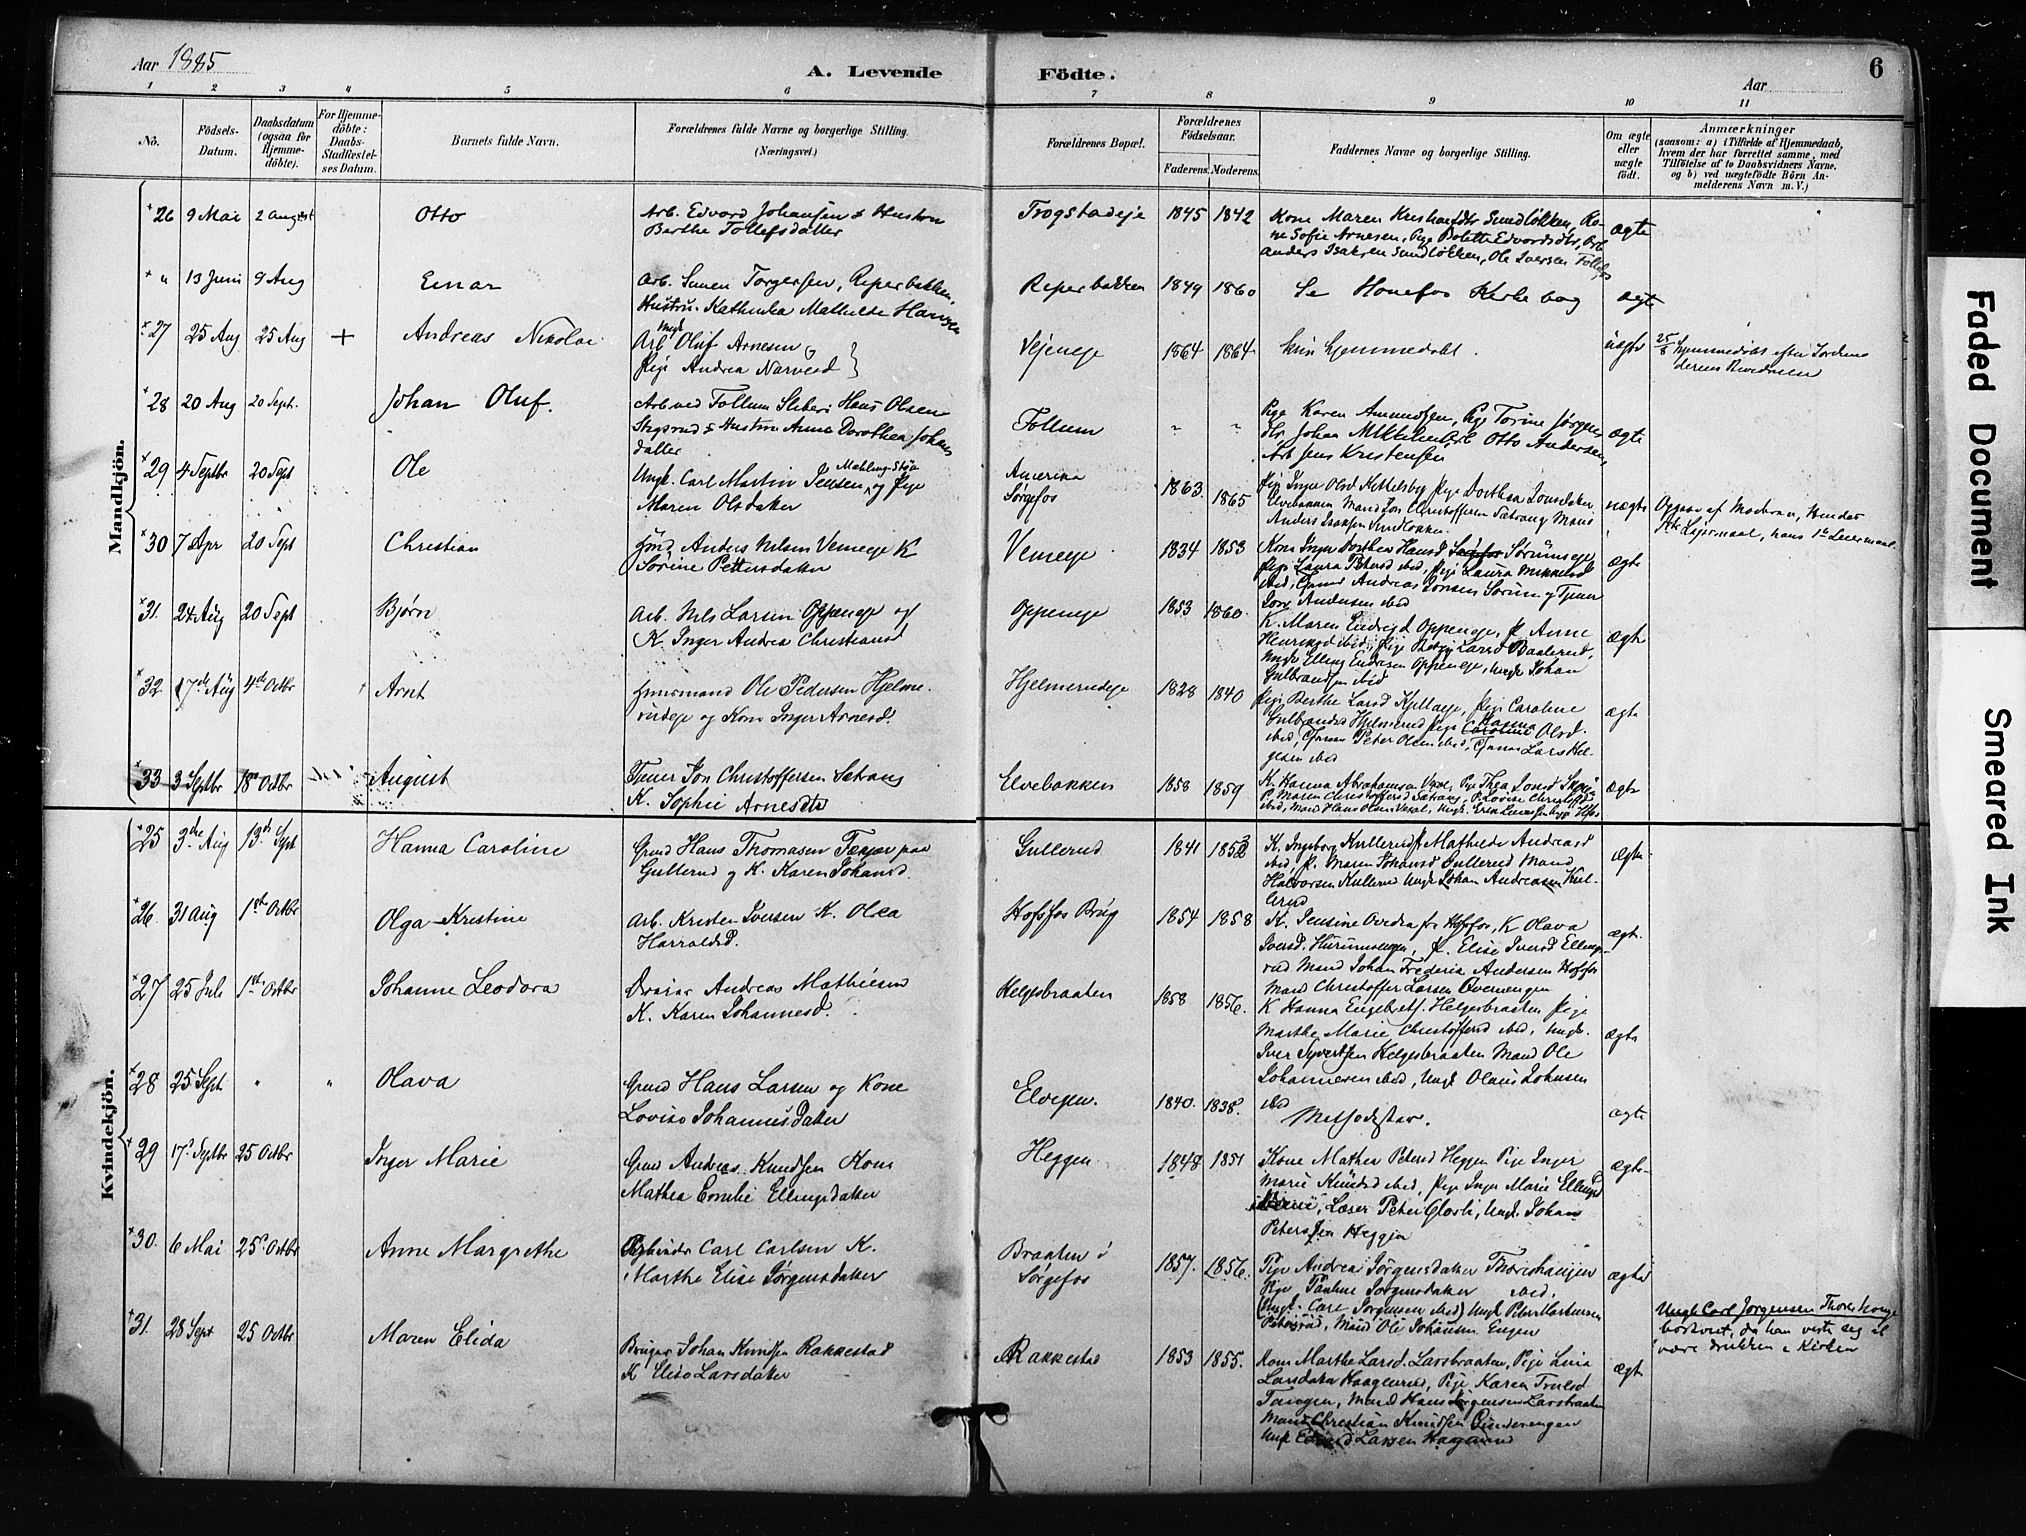 Aar 1885
A. Levende
Födte.
Aar
6
1 2 3 4 5 6 7 8 9 10 11
No.
Födsels-
Datum.
Daabsdatum
(ogsaa for
Hjemme-
döbte).
For Hjemme-
döbte:
Daabs-
Stadfæstel-
ses Datum.
Barnets fulde Navn.
Forældrenes fulde Navne og borgerlige Stilling.
(Næringsvei.)
Forældrenes Bopæl.
Forældrenes
Födselsaar.
Faderens. Moderens.
Faddernes Navne og borgerlige Stilling.
Om ægte
eller
uægte
födt.
Anmærkninger
(saasom: a) i Tilfælde af Hjemmedaab,
hvem der har forrettet samme, med
Tilföielse af to Daabsvidners Navne.
og b) ved uægtefödte Börn An-
melderens Navn m. V.)
Mandkjön.
26 9 Mai 2 August Otto
Arb. Edvard Johansen & Hustru
Berthe Tollefsdatter
Trogstadeje 1845 1842
Kone Maren
Sofie Arnesen, Pige Bolette Edvardsdtr, Arb.
Anders Isaksen Sundløkken, Ole Iversen
ægte
" 13 Juni 9 Aug Einar
Arb. Simen Torgersen, Reperbakken,
Hustru Kathinka Mathilde Hansen
Reperbakken 1849 1860 Se Hønefos Kirkebog ægte
27 25 Aug 25 Aug + Andreas Nikolai
Ungk
Arb Oluf Arnesen
Pige Andrea Narverd
Vejeneje 1864 1864 Kun hjemmedøbt. uægte
25/8 Hjemmedøbt efter Jordemo
deren
28 20 Aug 20 Sept. Johan Oluf.
Arb ved Follum Sliberi Hans Olsen
& Hustru Anne Dorothea Johans
datter
Follum " "
Pige Karen Amundsen, Pige Torine Jørgens
dtr Johan Mikkelsen Arb Otto Andersen,
Arb Jens Kristensen
ægte
29 4 Septbr 20 Sept Ole
Ungk. Carl Martin Jensen og Pige
Maren Olsdatter
Amerika
Sørgefos
1863 1865
Pige Inger Olsd Kittelsby Pige Dorthea
Elvebakken Mand Jon Christoffersen Setrang Mand
Anders Isaksen
uægte
Opgave af Moderen, Hendes
Lejermaal, hans 1ste Leiermaal.
30 7 Apr 20 Sept Christian
Anders Nilsen Vemeeje K
Sørine Pettersdatter
Vemeeje 1834 1853
Kone Inger Dorthea Hansd Sørumseje
Pige Laura Petersd ibid, Pige Laura Mikkelsd
ibid, Andreas Jonsen Sørum og Tjener
Andersen ibid
ægte
31. 24 Aug 20 Sept Bjørn
Arb. Nils Larsen Oppeneje og
K. Inger Andrea Christiansd
Oppeneje 1853 1860
K. Maren Oppeneje, P Anne
Henriksd ibid, Pige Larsd
Ungk Elling Oppeneje, Ungk Johan
Gulbrandsen ibid
ægte
32. 17de Aug 4de Octbr Arnt
Husmand Ole Pedersen Hjelme-
rudeje og Kone Inger Arnesd.
Hjelmerudeje 1828 1840
Pige Berthe Larsd Pige Caroline
Gulbrandsd Hjelmerud Pige Hanna Olsd.
ibid, Tjener Peter Olsen ibid, Tjener Lars Hel-
gesen ibid
ægte
33 3 Septbr 18 Octbr August
Tjener Jon Christoffersen Setrang
K. Sophie Arnesdtr
Elvebakken 1858 1859
K. Hanna Abrahamsen Veme, Pige Thea
P. Maren Christoffersd Setrang, P. Lovise Christoffd
ibid, Mand Hans Olsen
ægte
Kvindekjön.
25 3die Aug 13de Sept Hanna Caroline
Grmd Hans Thomasen Tesser paa
Gullerud og K. Karen Johansd.
Gullerud 1841 1852
K. Ingeborg Kullerud P Mathilde Andreasd
ibid, P. Maren Johansd Gullerud Mand
Halvorsen Kullerud Ungk Johan Andreasen Kul-
lerud
ægte
26. 31 Aug 1ste Octbr Olga Kristine
Arb. Kristen Iversen K. Olea
Harraldsd.
Hofsfos Brug 1854 1858
K. Hofsfos, K Olava
Iversd. P. Elise Iversd Elling-
rud Mand Johan Frederik Andersen Hofsfos
Mand Christoffer Larsen Øverengen
ægte
27 25 Juli 1ste Octbr Johanne Leodora
Andreas Mathiesen
K. Karen Johannesd.
Helgesbraaten 1858 1856.
K Hanna Engebretsd. Helgesbraaten Pige
Marthe Marie Christoffersd ibid, Ungk.
Iver Syvertsen Helgesbraaten Mand Ole
Johannesen ibid, Ungk Olaus Johnsen
ibid
ægte
28 25 Sept " " Olava
Grmd Hans Larsen og Kone
Lovise Johannesdatter
Elvejen. 1840. 1838. Methodister. ægte
29 17 Septbr 25 Octbr Inger Marie
Grmd Andreas Knudsen Kone
Mathea Emilie Ellingsdatter
Heggen 1848 1851
Kone Mathea Petersd Heggen Pige Inger
Marie Knudsd ibid, Pige Inger Marie Ellingsd
Lærer Peter Ungk. Johan
Petersen Heggen
ægte
30. 6 Mai 25 Octbr Anne Margrethe
Carl Carlsen K.
Marthe Elise Jørgensdatter
Braaten i
Sørgefos
1857. 1856.
Pige Andrea Jørgensdatter Thoreshaugen
Pige Pauline Jørgensdatter ibid.
(Ungk. Carl Jørgensen ibid) Ungk Peter Martinsen
Mand Ole Johansen Engen
ægte
Ungk Carl Jørgensen Thoreshauge
bortvist, da han viste sig at
være drukken i Kirken
31. 28 Sept 25 Octbr Maren Elida
Bruger Johan Knudsen Rakkestad
K Elise Larsdatter
Rakkestad 1853 1855.
Kone Marthe Larsd. Larsbraaten, Pige Lina
Larsdatter Haagenrud, Pige Karen Trulsd
Tangen, Mand Hans Jørgensen Larsbraaten
Mand Christian Knudsen
Ungk Larsen
ægte
Faded Document
Smeared Ink